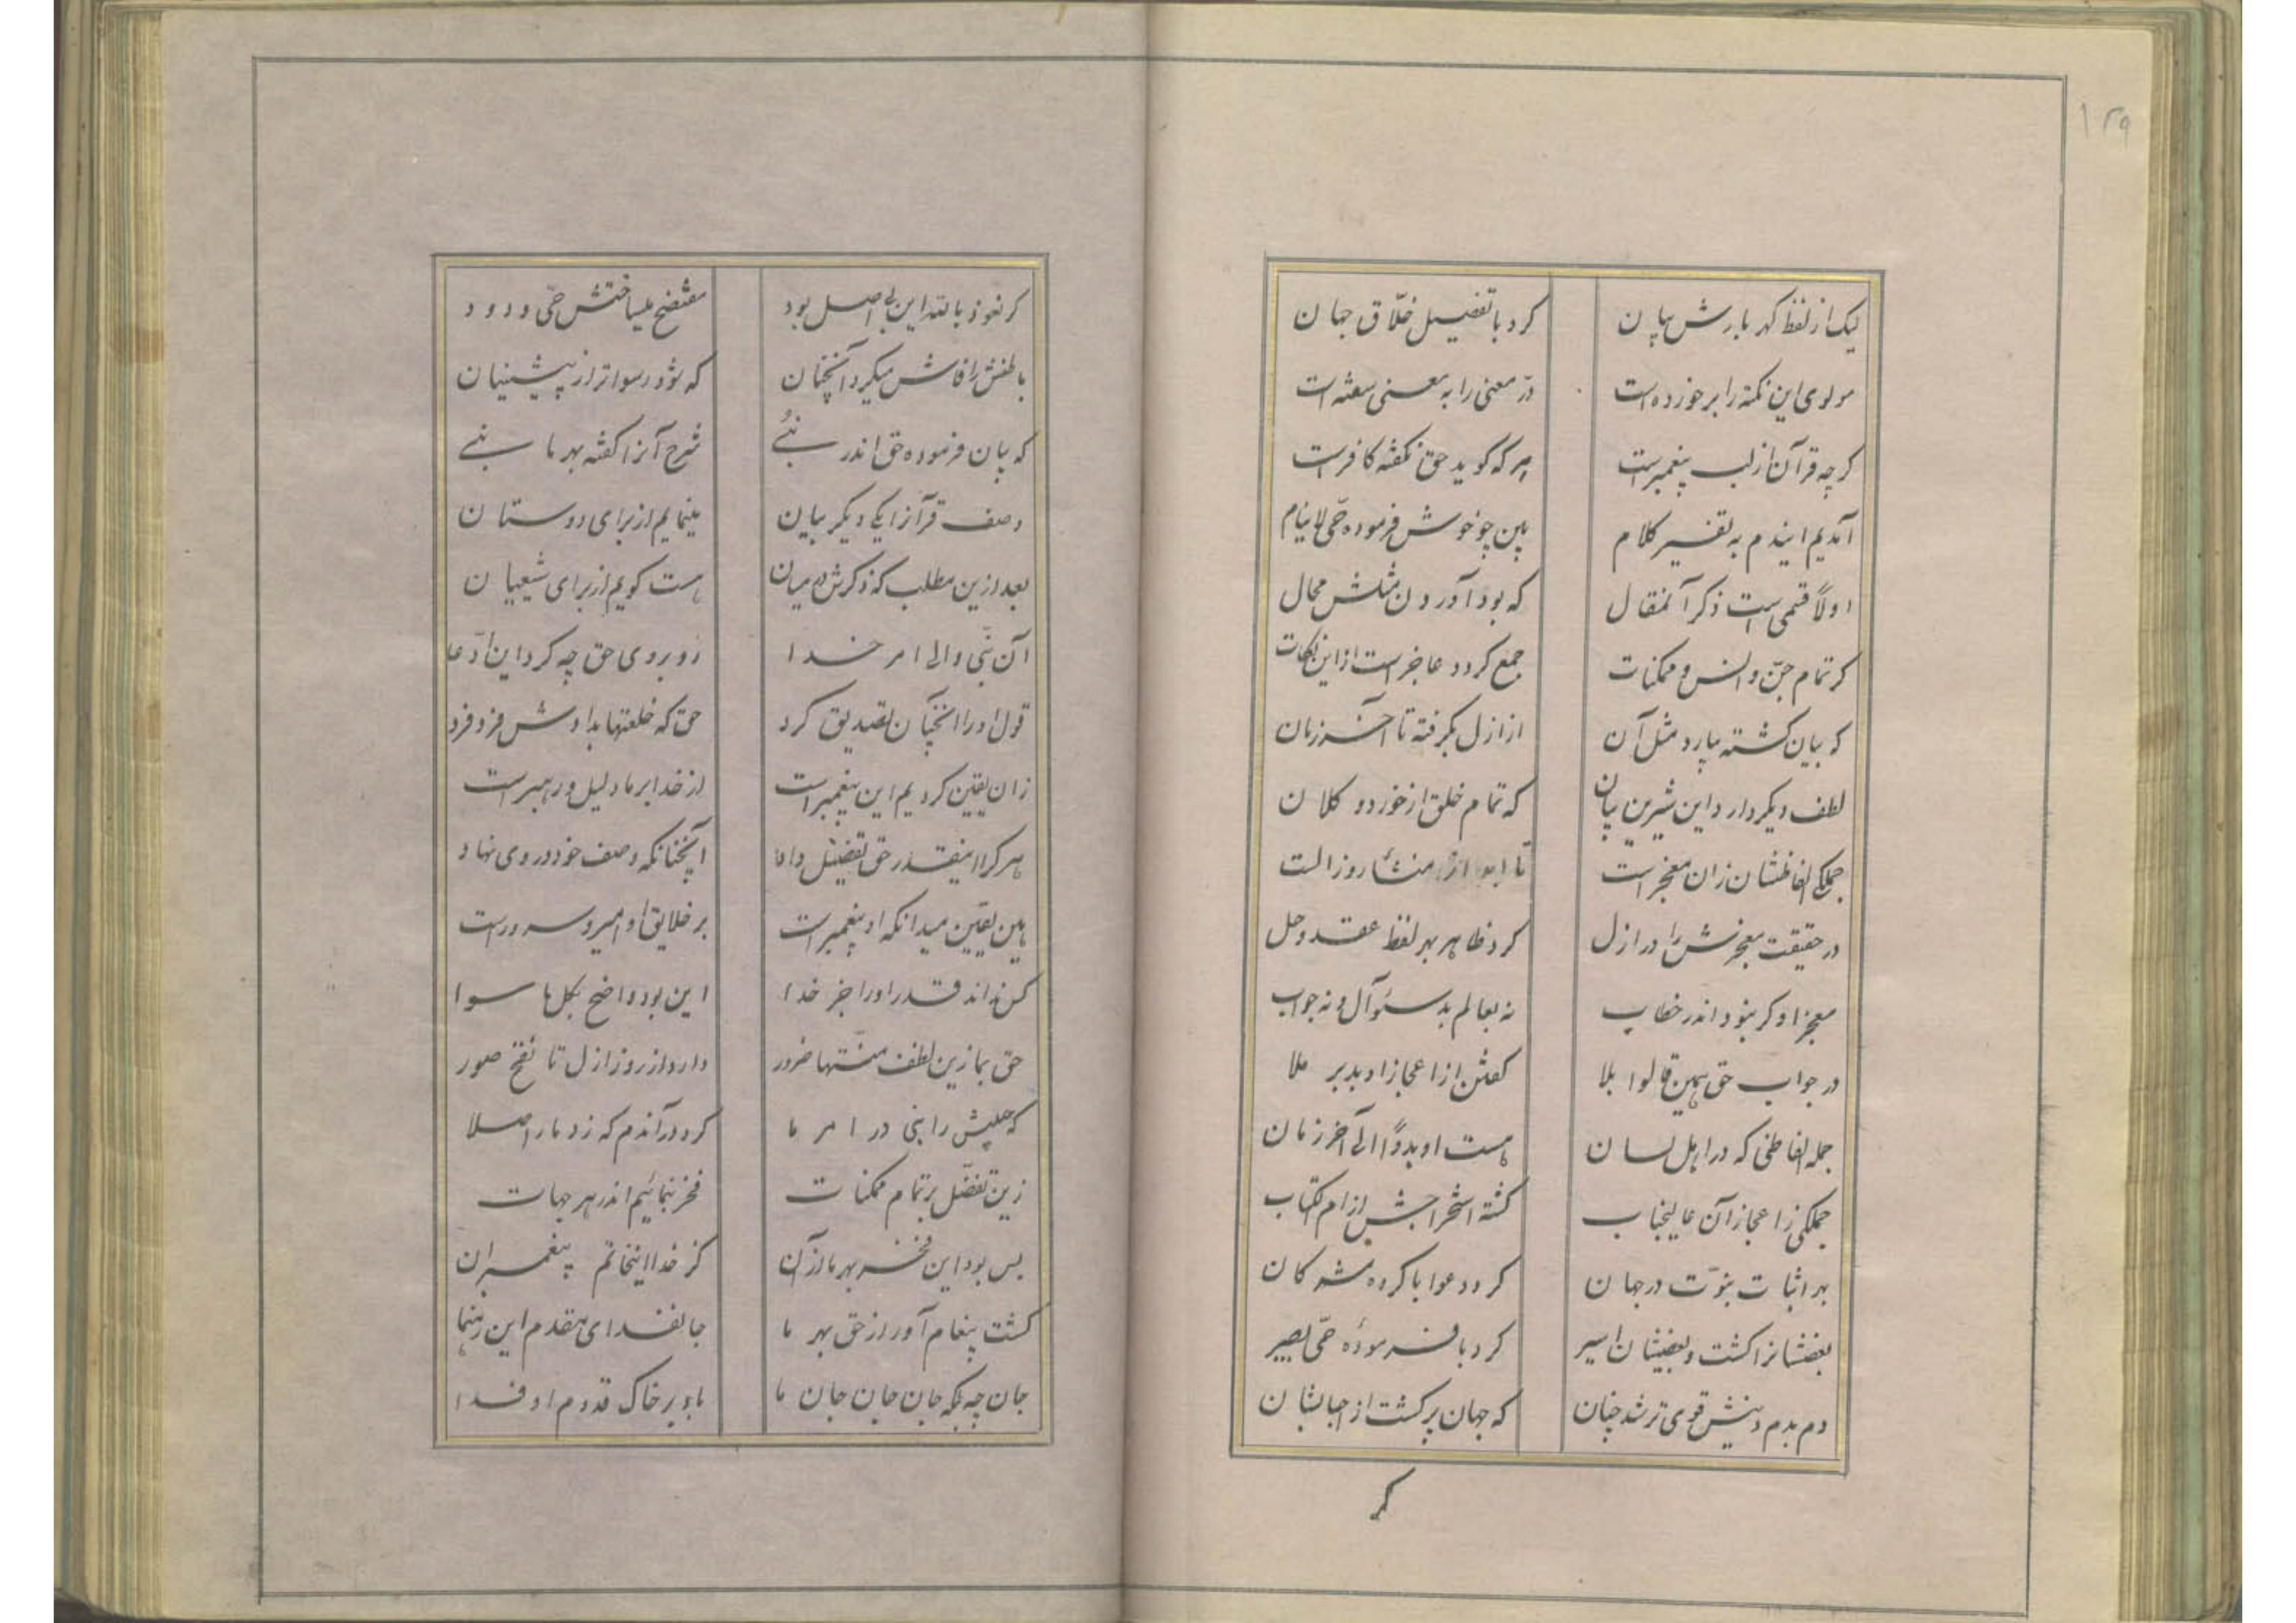 ۱۲۹
لیک از لفظ کهربارش بیان کرد با تفصیل خلّاق جهان
مولوی این نکته را برخورده است درّ معنی را به معنی سفته است
کرچه قرآن از لب پیغمبرست هر که کوید حق نکفته کافرست
آمدیم ایندم به تفسیر کلام بین چو خوش فرموده حّی لاینام
اولاً قسمی است ذکر آنمقال که بود آوردن مثلش محال
کر تمام جنّ و انس و ممکنات جمع کردد عاجز است از این نکات
که بیان کشته بیارد مثل آن از ازل بکرفته تا آخر زمان
لطف دیکر دارد این شیرین بیان که تمام خلق از خورد و کلان
جملکی الفاظشان زان معجز است تا ابد از منشاء روز الست
در حقیقت معجزش را در ازل کرد ظاهر بهر لفظ عقد و حل
معجز او کر نبود اندر خطاب نه بعالم بد سئوآل و نه جواب
در جواب حق همین قالوا بلا کفتن از اعجاز او بد بر ملا
جمله الفاظی که در اهل لسان هست او بدوًا الی آخر زمان
جملکی ز اعجاز آن عالیجناب کشته استخراجش از ام الکتاب
بهر اثبات نبوّت در جهان کرد دعوا با کروه مشرکان
بعضشانرا کشت و بعضیشان اسیر کرد با فرمودهٔ حّی بصیر
دم بدم دینش قوی تر شد چنان که جهان پر کشت از اجبالشان
کر
کر نعوذ بالله این بی اصل بود مفتضح میساختش حّی ودود
باطنش را فاش میکرد آنچنان که شود رسواتر از پیشینیان
که بیان فرموده حق اندر نبُے شرح آنرا کفته بهر ما نبے
وصف قرآنرا یکی دیکر بیان مینمایم از برای دوستان
بعد از این مطلب که ذکرش در میان هست کویم از برای شیعیان
آن نبّی والی امر خدا روبروی حق چه کرد این ادّعا
قول او را آنچنان تصدیق کرد حق که خلعتها بدادش فرد فرد
زان یقین کردیم این پیغمبر است از خدا بر ما دلیل و رهبر است
هر کرا اینقدر حق تفضیل داد آنچنانکه وصف خود در وی نهاد
هین یقین میدانکه او پیغمبر است بر خلایق او امیر و سرور است
کس نداند قدر او را جز خدا این بود واضح بکل ما سوا
حق بما زین لطف منّتها ضرور دارد از روز ازل تا نفخ صور
که جلیش را نبی در امر ما کرد در آندم که زد ما را صلا
زین تفضّل بر تمام ممکنات فخر بنمائیم اندر هر جهات
بس بود این فخر بهر ما از آن کز خدا اینخاتم پیغمبران
کشت پیغام آور از حق بهر ما جانفدای مقدم این رهنما
جان چه بلکه جان جان جان ما باد بر خاک قدوم او فدا